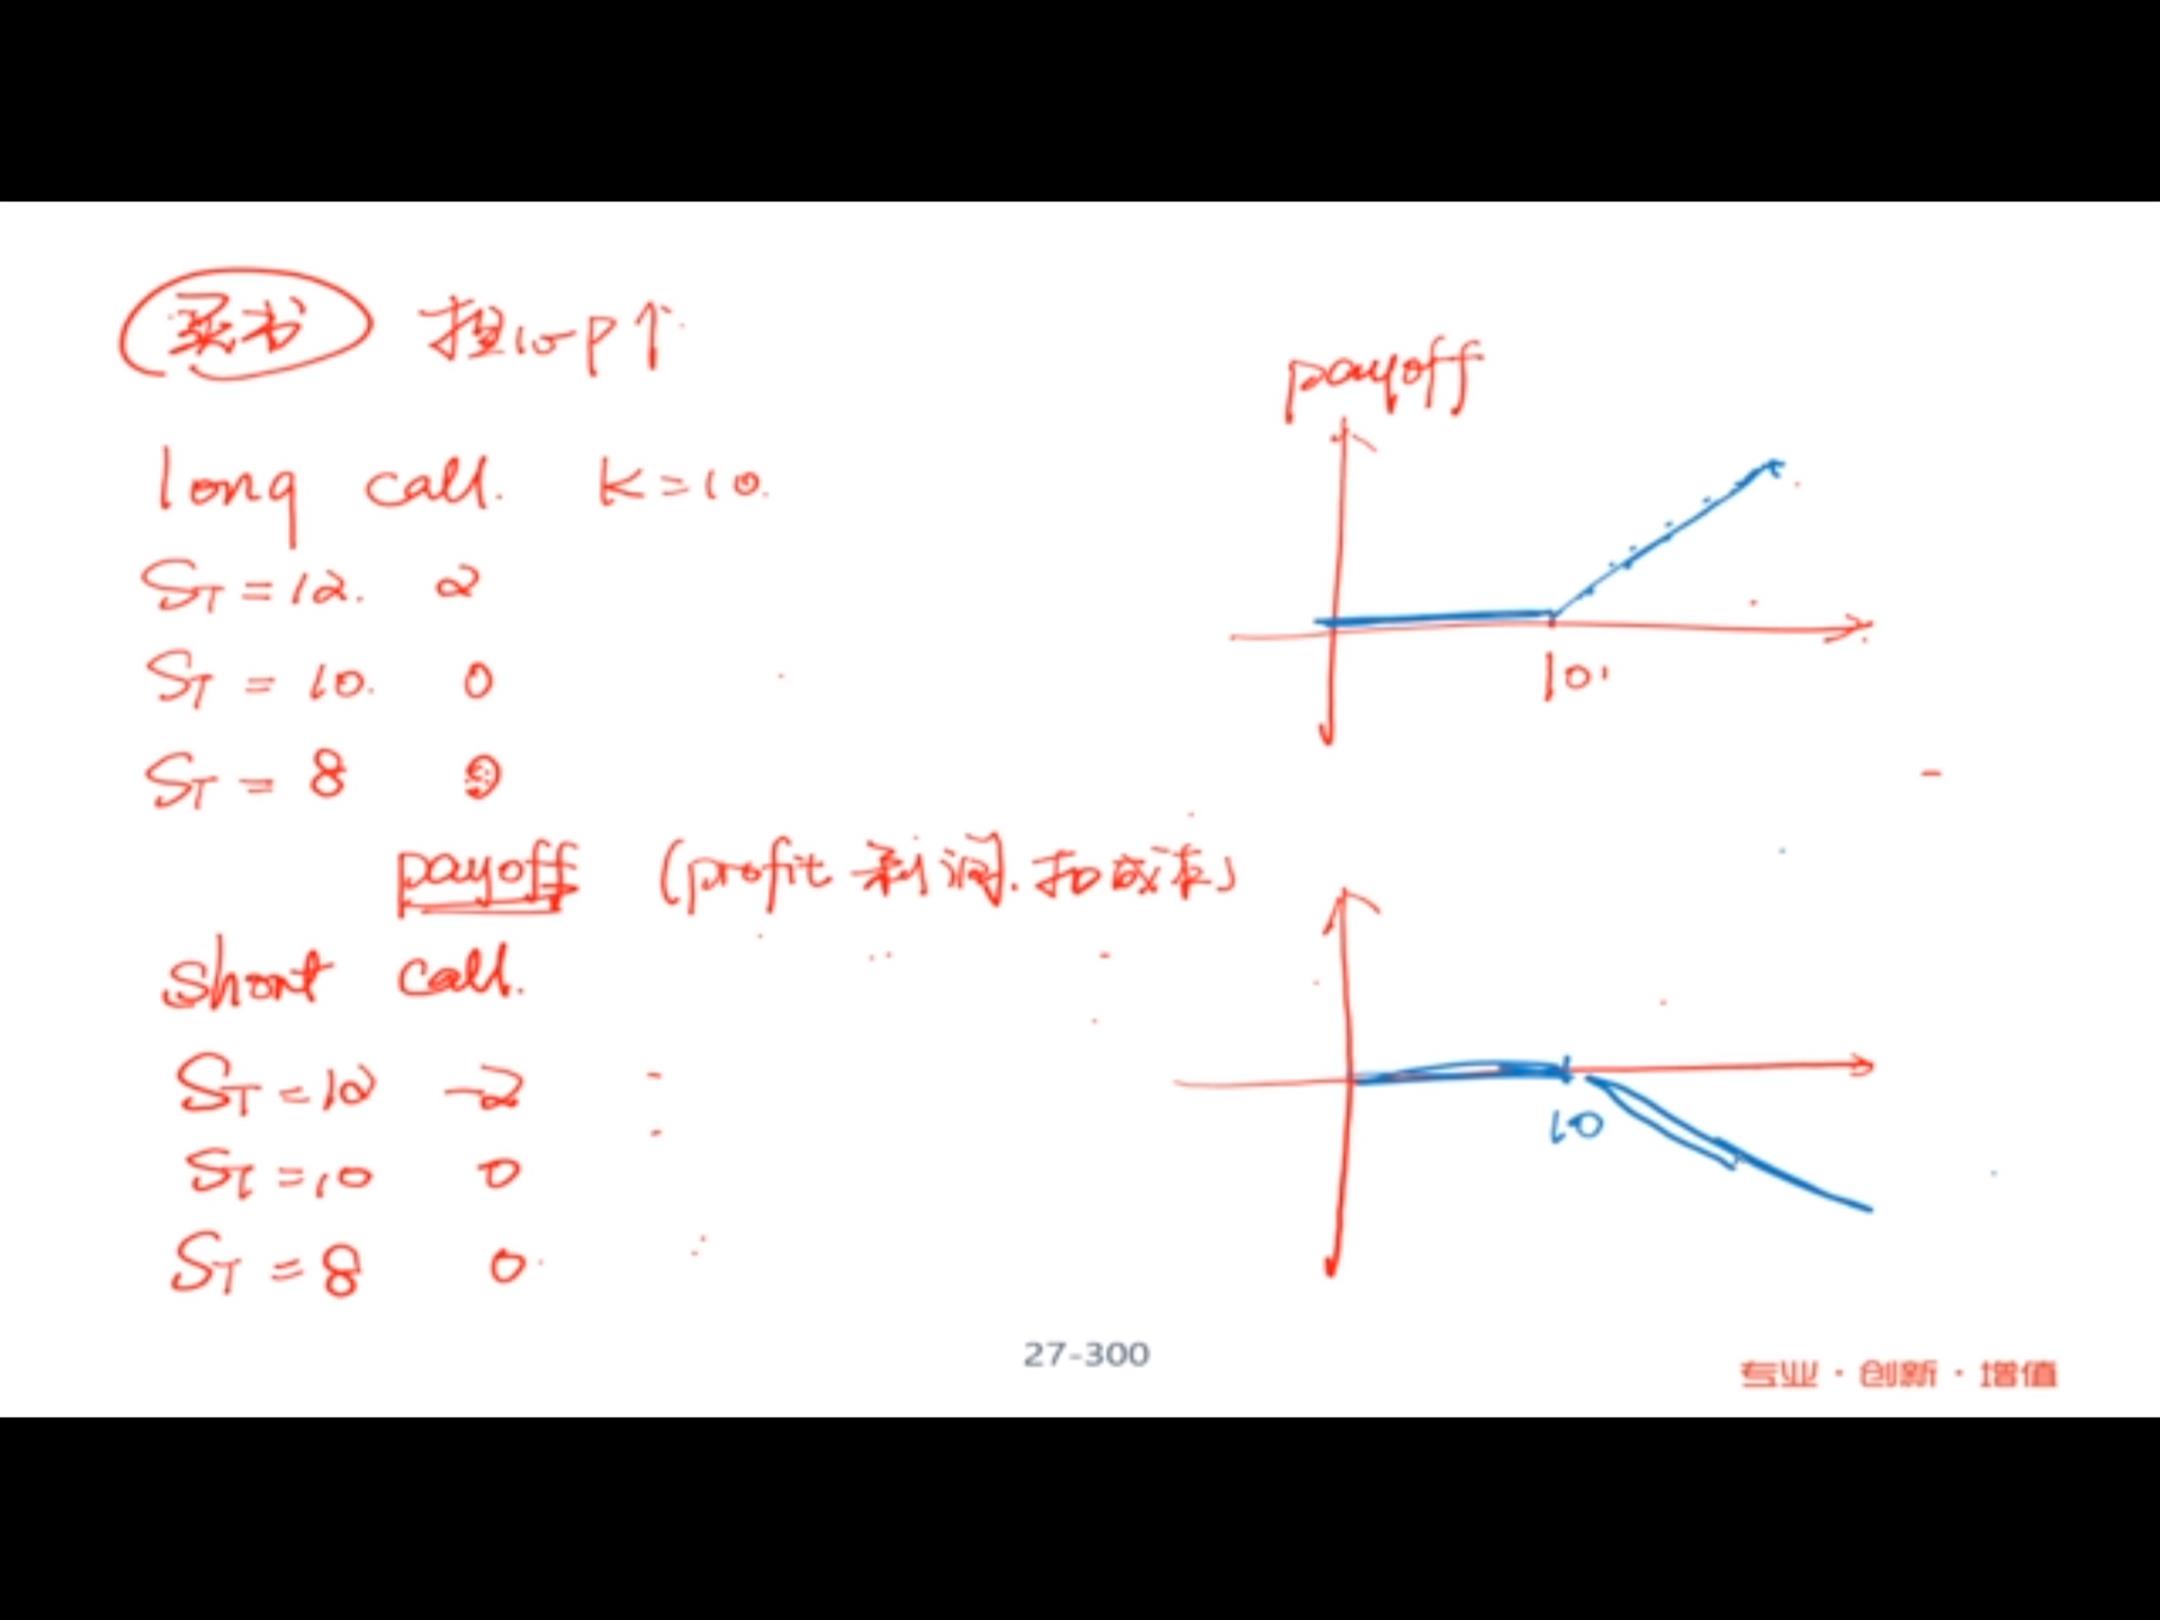 买书 担心P↑
long call. K=10.
ST=12. 2
ST=10. 0
ST=8 0
payoff (profit 利润. 扣成本)
short call.
ST=12 -2
ST=10 0
ST=8 0
payoff
10
10
27-300
专业·创新·增值